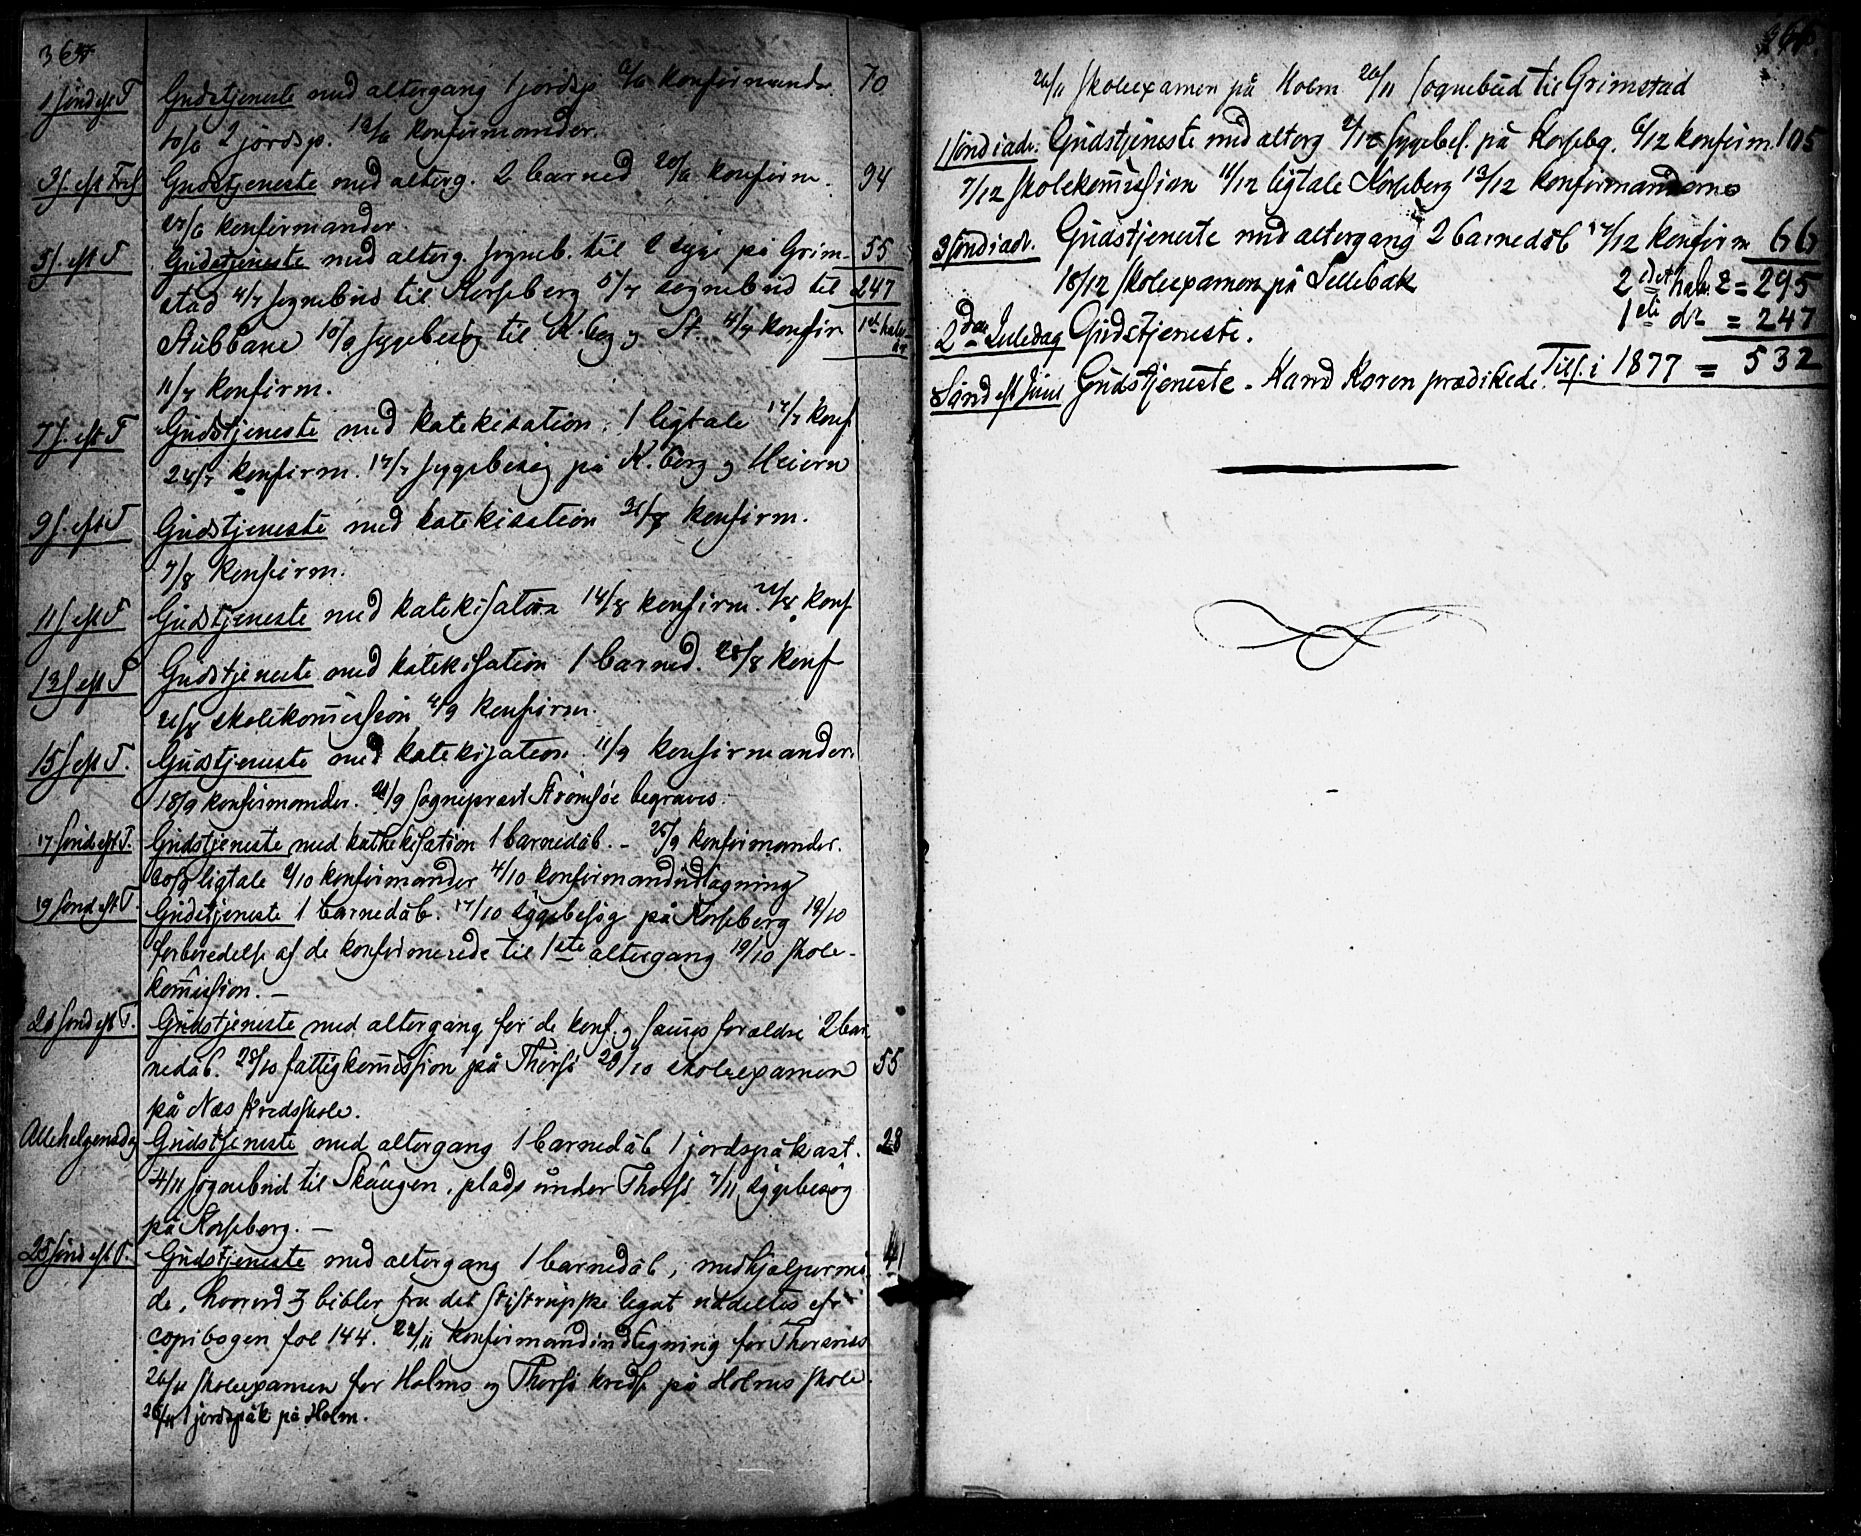 364
1 sønd eft T Gudstjeneste med altergang 1 jordsp 6/6 konfirmander 70
10/6 2 jordsp. 13/6 konfirmander.
3 s. eft Tref Gudstjeneste med alterg. 2 barned 20/6 konfirm. 94
27/6 konfirmander
5 s. eft T Gudstjeneste med alterg. sogneb. til 2 syge på Grim- 55
stad 4/7 sognebud til Korseberg 5/7 sognebud til 247
Stubbane 10/7 sygebesøg til K.berg og St. 4/7 konfir 1ste halv
11/7 konfirm.
7 s. eft T Gudstjeneste med katekisation. 1 ligtale 17/7 konf
24/7 konfirm. 17/7 sygebesøg på K.berg og Heiern
9 s. eft T Gudstjeneste med katekisation 31/7 konfirm.
7/8 konfirm.
11 s eft T Gudstjeneste med katekisation 14/8 konfirm. 21/8 konf
13 s eft T Gudstjeneste med katekisation 1 barned. 28/8 konf
skolekomission 4/9 konfirm.
15 s eft T. Gudstjeneste med katekisation 11/9 konfirmander
18/9 konfirmander. 21/9 sogneprest Strømsøe begraves.
17 sønd eft T. Gudstjeneste med kathekisation 1 barnedåb. - 25/9 konfirmander.
ligtale 2/10 konfirmander 4/10 konfirmandudtagning
19 sønd eft T. Gudstjeneste 1 barnedåb. 17/10 sygebesøg på Korseberg 19/10
forberedelse af de konfirmerede til 1ste altergang 19/10 skole-
komission. -
21 sønd eft T. Gudstjeneste med altergang for de konf. og samesforældre 2 bar
nedåb. 28/10 fattigkomission på Thorsø 29/10 skoleexamen 55
på Næs Kredsskole.
Allehelgensdag Gudstjeneste med altergang 1 barnedåb 1 jordspåkast. 28
4/11 sognebud til Skaugen, plads under Thorsø 7/11 sygebesøg
på Korseberg. -
25 sønd eft T. Gudstjeneste med altergang 1 barnedåb, medhjælpermø 41
de, hvorved 3 bibler fra det Stistrupske legat uddeltes efr
copibogen fol 144. 22/11 konfirmandindtegning for Thorsnæs
26/11 skoleexamen for Holms og Thorsø kreds på Holms skole
26/11 1 jordspåk på Holm.
26/11 skoleexamen på Holm 26/11 sognebud til Grimstad
1 sønd i adv. Gudstjeneste med alterg 2/12 sygebes. på Korsebg. 6/12 konfirm. 105
7/12 skolekomission 11/12 ligtale Korseberg 13/12 konfirmanderne
3 sønd i adv. Gudstjeneste med altergang 2 barnedåb 17/12 konfirm 66
18/12 skoleexamen på Sellebak 2det halv = 295
1ste do = 247
2den Juledag Gudstjeneste.
Sønd eft Juul Gudstjeneste. Kand Koren prædikede. Tils. i 1877 = 532